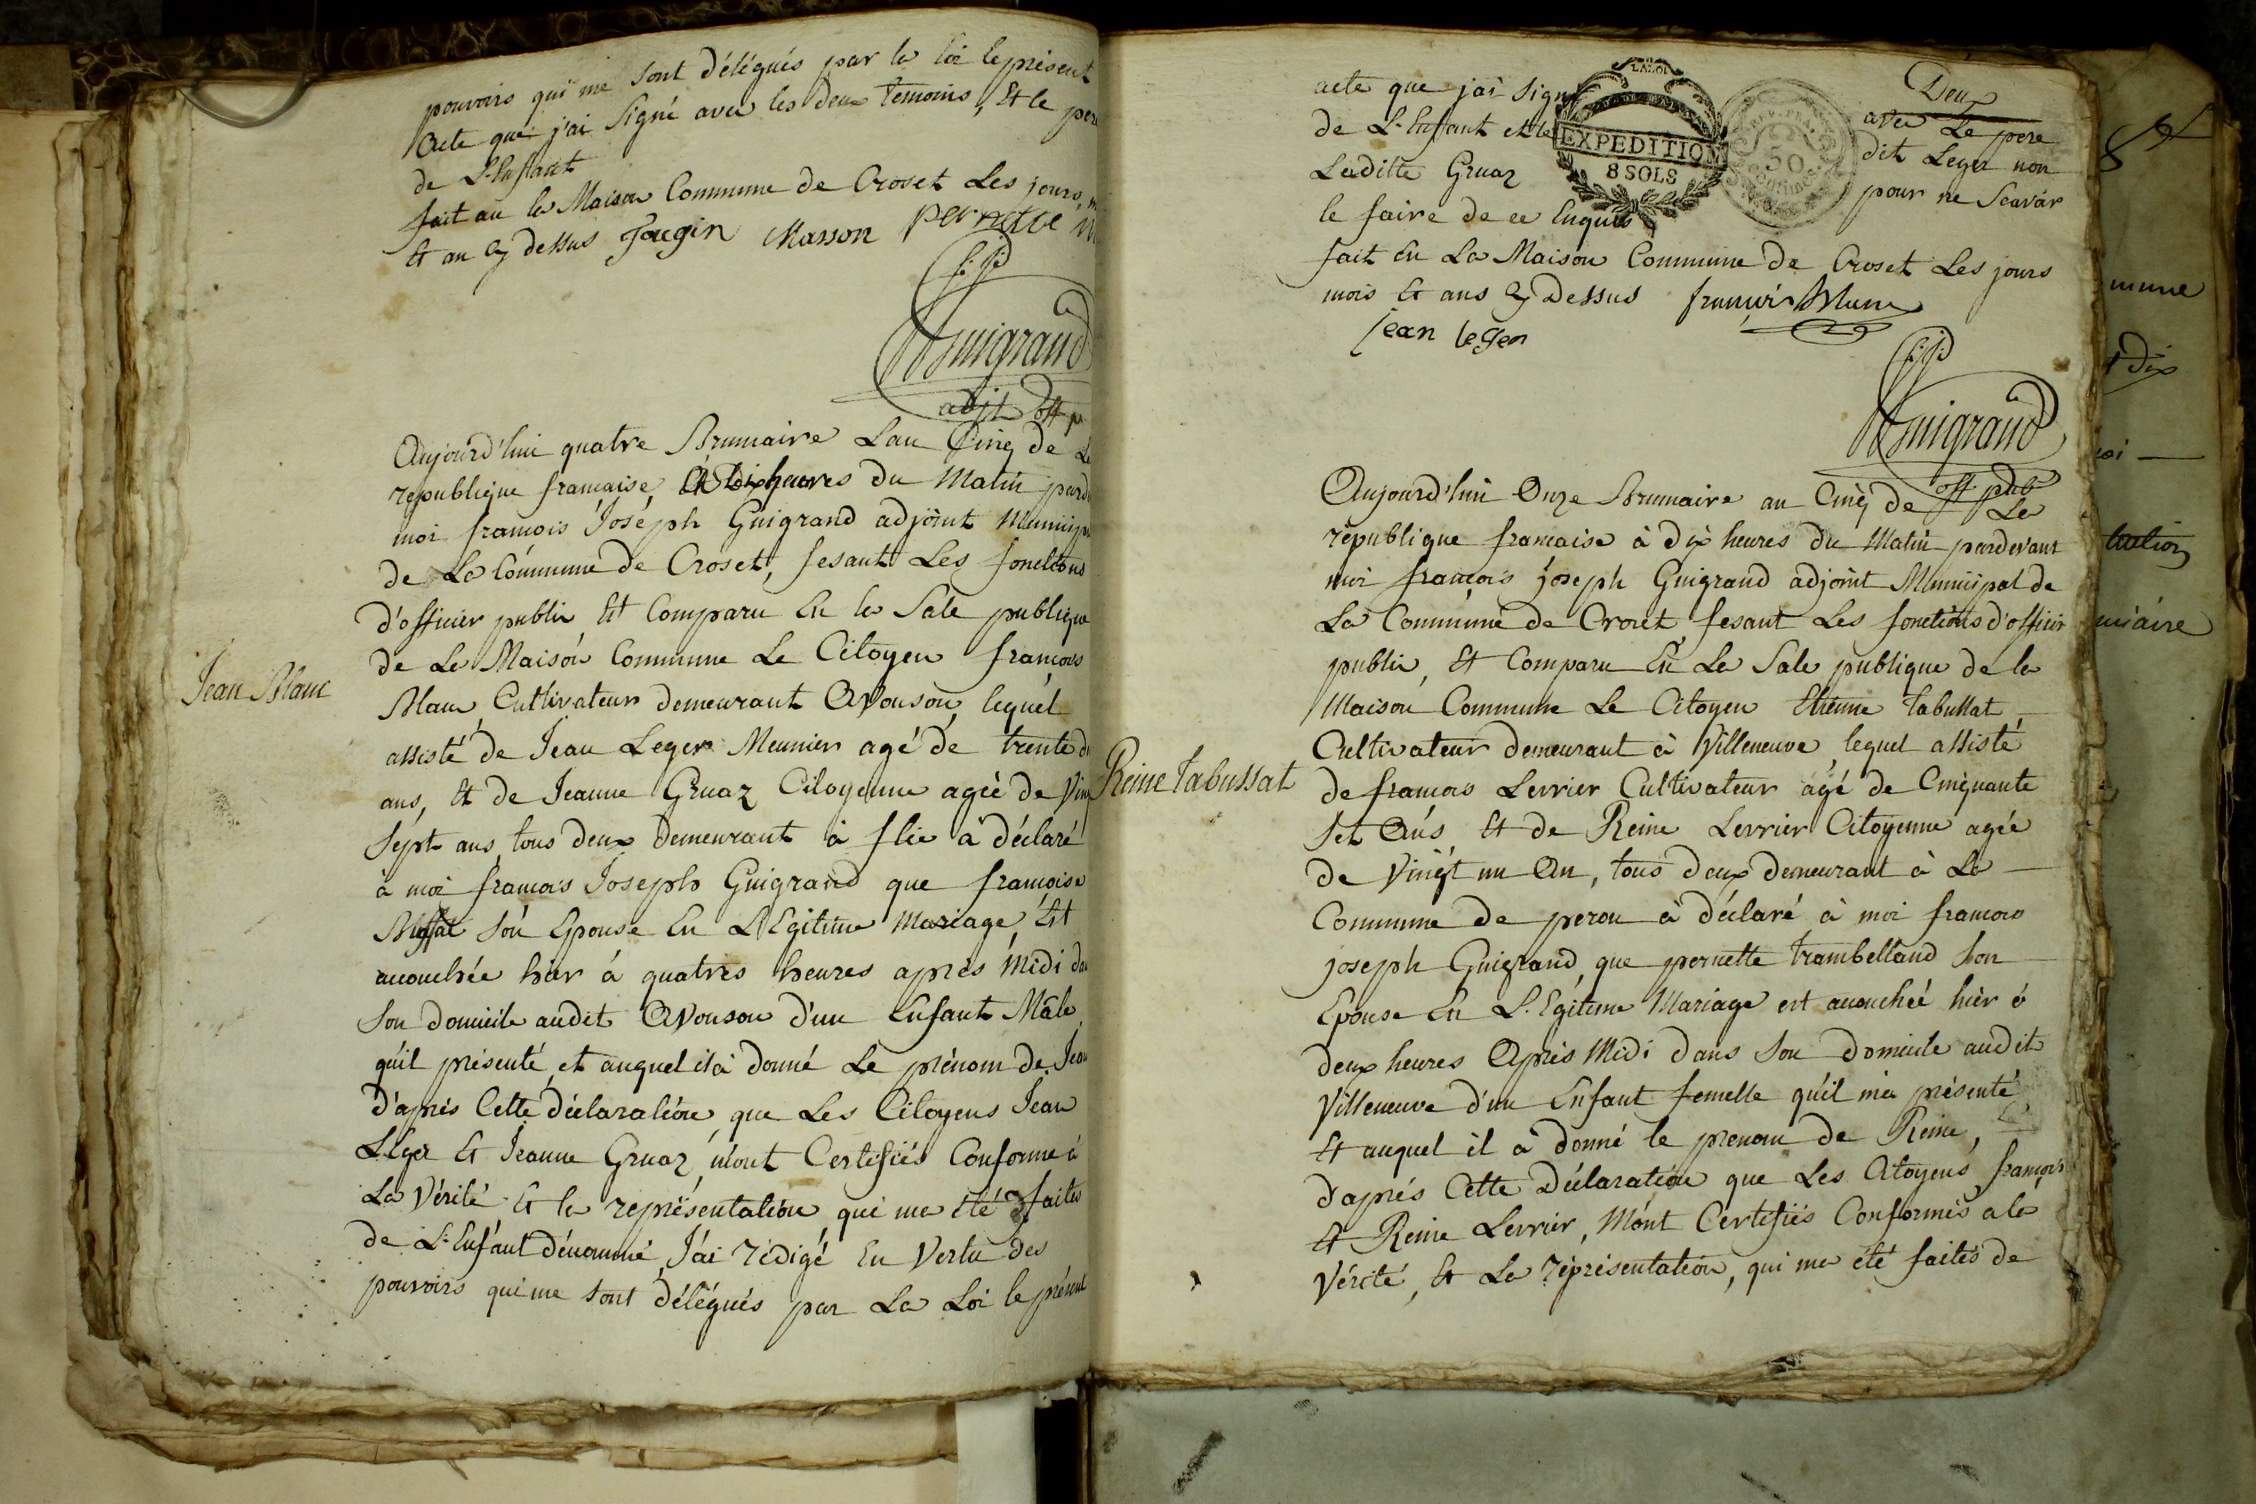 pouvoirs qui me sont délégués par la loi le présent
acte que j'ai signé avec les deux temoins, Et le pere
de L'Enfant
fait au la Maison Commune de Croset Les jours, m
Et an cy dessus Jougin Masson pernette
Guigrand
adjt off p
Aujourd'hui quatre Brumaire Lan Cinq de La
republique francaise, à dix heures du Matin pard
moi francois Joséph Guigrand adjoint Municip
de La Commune de Croset, fesant Les fonctions
d'officier public Et Comparu En la Sale publique
de La Maison Commune Le Citoyen francois
Jean Blanc
Blanc Cultivateur demeurant Avouson, lequel
assisté de Jean Leger Meunier agé de trente d
ans, Et de Jeanne Gruaz Citoyenne agée de Vingt
Sept ans, tous deux demeurant à flie a déclaré
à moi francois Joseph Guigrand que francoise
son Epouse En LEgitime Mariage, Est
accouchée hier à quatres heures après midi da
son domicile audit Avouson d'un Enfant Mâle
qu'il présenté, et auquel il à donné Le prénom de Jean
D'après Cette déclaration, que Les Citoyens Jean
Léger Et Jeanne Gruaz, m'ont Certifiés Conforme à
La Vérité Et la représentation qui ma été faites
de L'Enfant dénommé, J'ai rédigé En Vertu des
pouvoirs qui me sont délégués par La Loi le présent
Deux
acte que j'ai signé avec Le pere
de L'Enfant et le dit Leger non
Laditte Gruaz pour ne Scavoir
le faire de ce Enquis
fait En La Maison Commune de Croset Les jours
mois Et ans Cy Dessus françois Blanc
jean leger
LA LOI
EXPEDITION
8 SOLS
REP. FRA.
50
CENTIMES
Guigrand
off pub
Aujourd'hui Onze Brumaire an Cinq de La
république francaise à dix heures du Matin pardevant
moi francois joseph Guigrand adjoint Municipal de
La Commune de Crozet, fesant Les fonctions d'officier
public, Et Comparu En La Sale publique de la
Maison Commune Le Citoyen Etienne Tabussat
Cultivateur demeurant à Villeneuve, lequel assisté
Reine Tabussat
de francois Levrier Cultivateur agé de Cinquante
Set Ans, Et de Reine Levrier Citoyenne agée
de Vingt un An, tous deux demeurant à La
Commune de peron à déclaré à moi francois
joseph Guigrand, que pernette trambelland Son
Epouse En L'Egitime Mariage est accouchée hier à
deux heures Après Midi dans Son domicile audit
Villeneuve d'un Enfant femelle qu'il m'a présenté
Et auquel il à donné le prenom de Reine,
d'après Cette Déclaration que Les Citoyens francois
Et Reine Levrier, M'ont Certifiés Conformes a la
Vérité, Et La représentation, qui ma été faites de
mune
dix